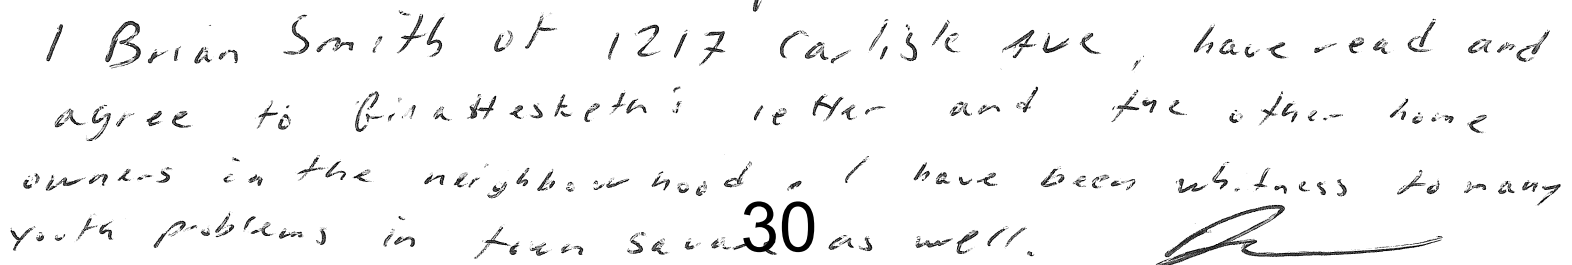 I Brian Smith of 1217 Carlisle Ave, have read and
agree to letter and the other home
owners in the neighbourhood. I have been whitness to many
youth problems in town as well.
30